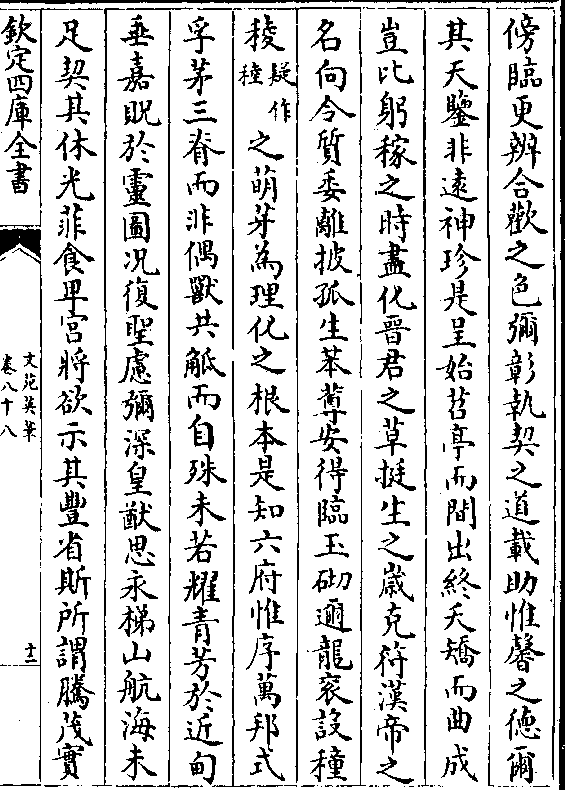 傍臨更辨合歡之色彌彰執契之道載助惟馨之徳爾
其天鑒非逺神珍是呈始苕亭而間出終夭矯而曲成
豈比躬稼之時盡化晉君之草挺生之歳克符漢帝之
名向令質委離披孤生苯䔿安得臨玉砌邇龍衮設種
稜疑作稑之萌芽為理化之根本是知六府惟序萬邦式
孚茅三脊而非偶獸共觝而自殊未若耀青芳於近甸
垂嘉貺於靈圖况復聖慮彌深皇猷思永梯山航海未
足契其休光菲食卑宫將欲示其豐省斯所謂騰茂實
欽定四庫全書
文苑英華
卷八十八
十二